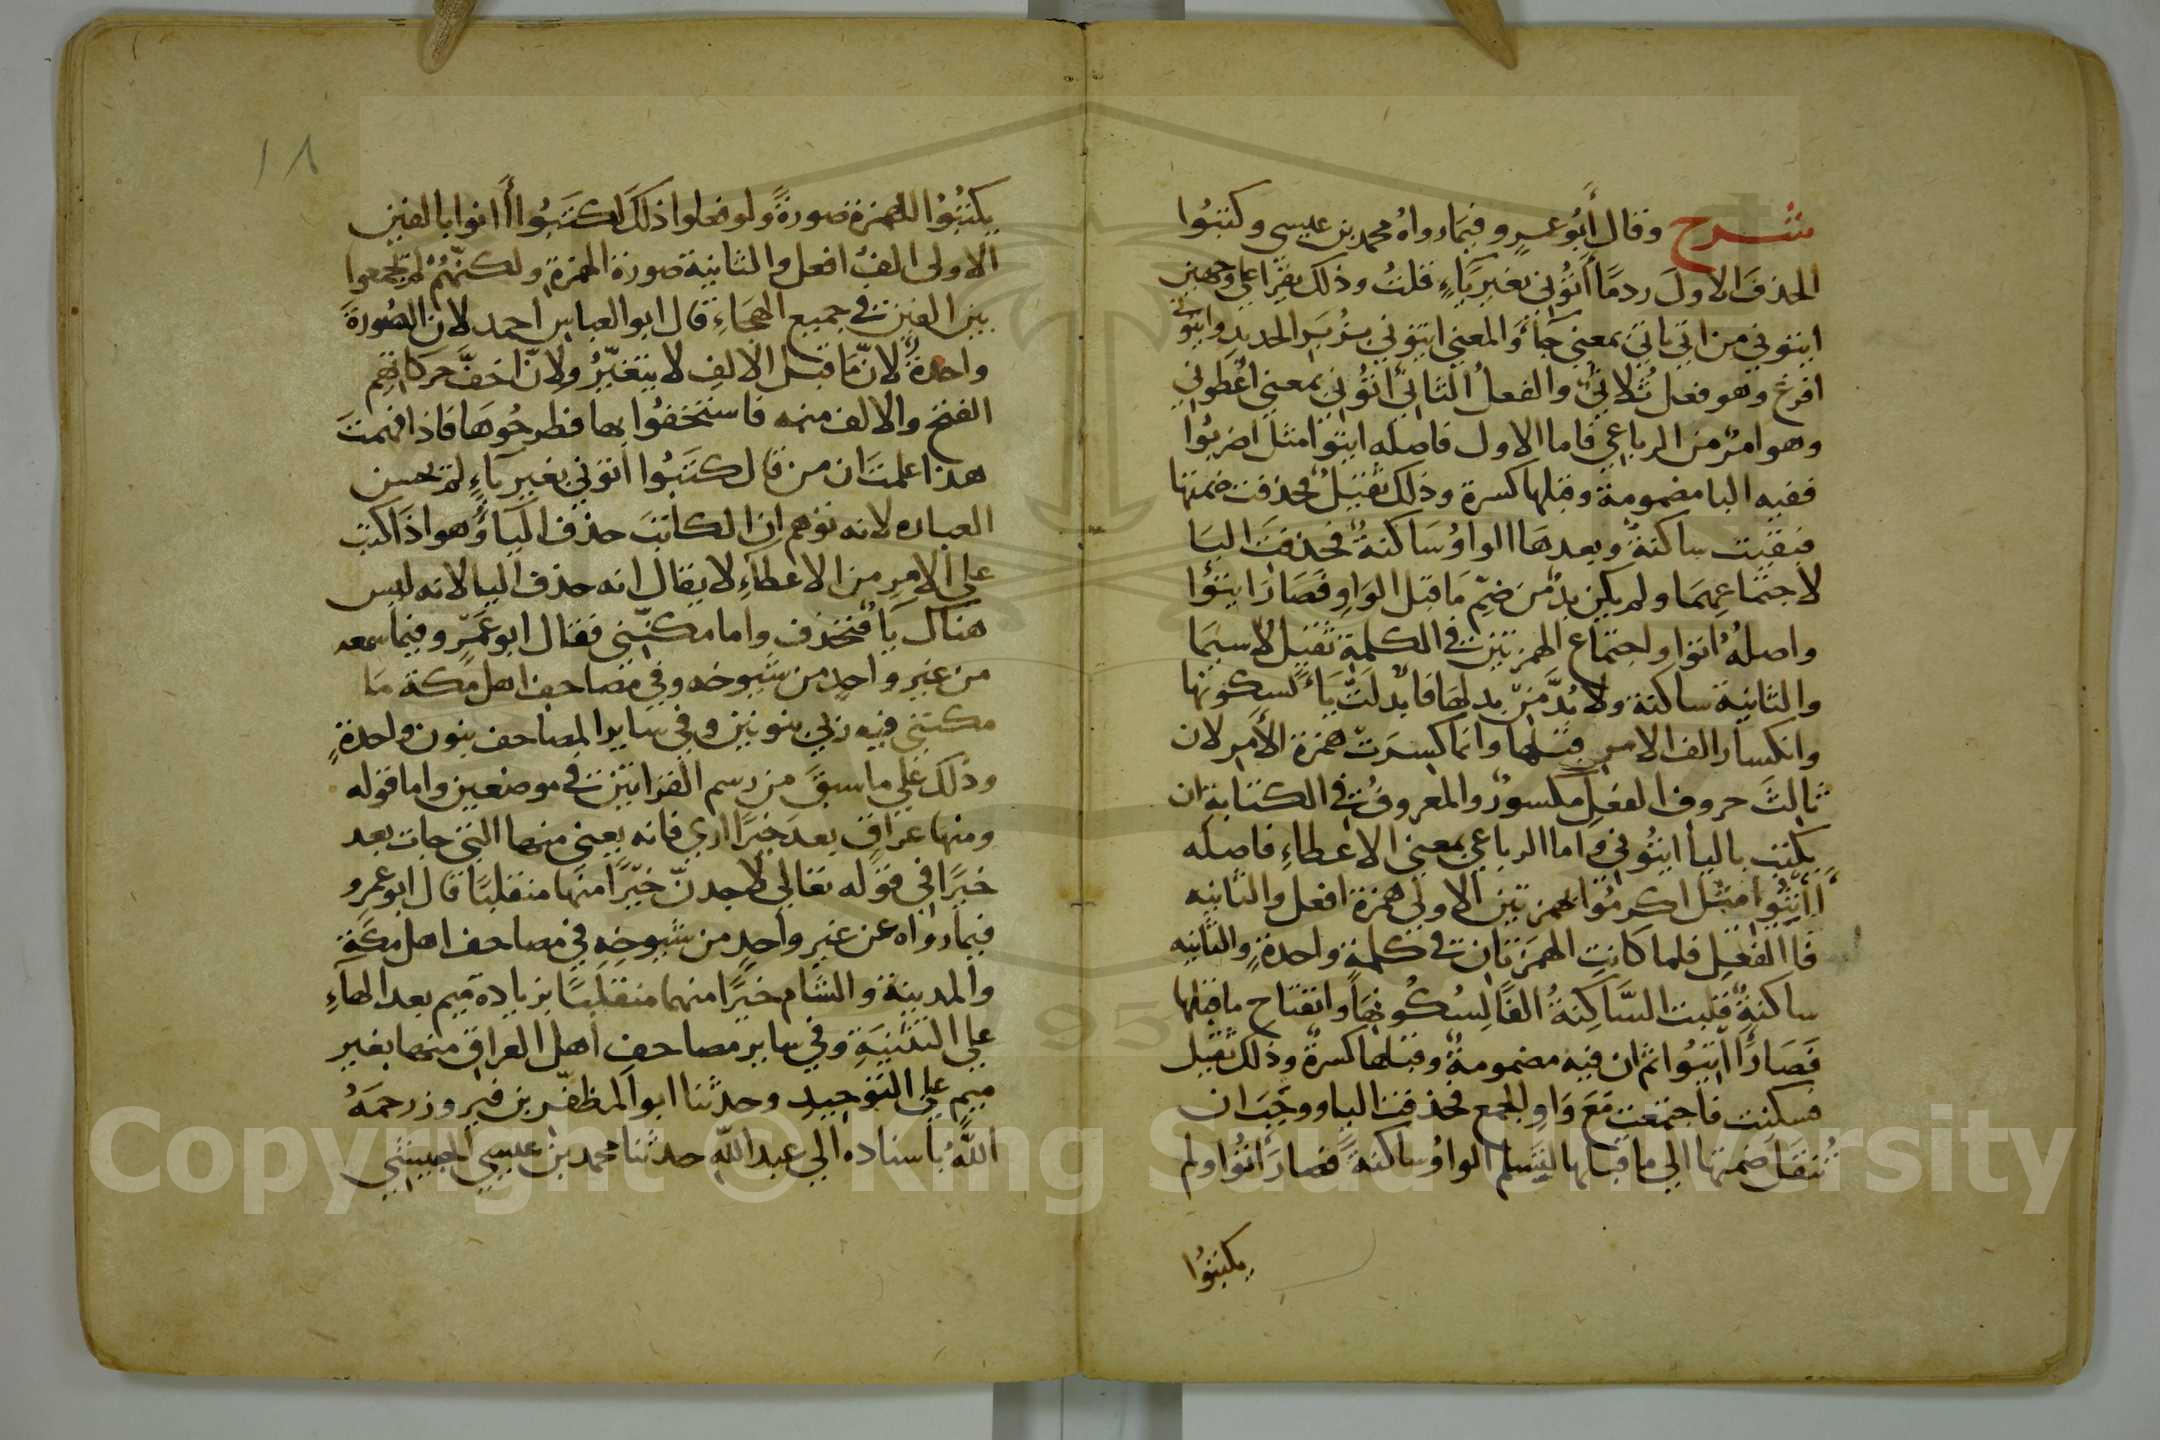 شرح وقال أبو عمرو فيما رواه محمد بن عيسى وكتبوا
الحذف الاول ردمًا أتوني بغير ياءٍ قلت وذلك يقرا على وجهين
ايتوني من اتى ياتي بمعنى جاء والمعنى ايتوني بزبر الحديد وايتوني
افرغ وهو فعل ثلاثي والفعل الثاني اتوني بمعنى اعطوني
وهو امر من الرباعي فاما الاول فاصله ايتيوا مثل اضربوا
ففيه اليا مضمومة وقبلها كسرة وذلك ثقيل فحذفت ضمتها
فبقيت ساكنة وبعدها الواو ساكنة فحذفت اليا
لاجتماعهما ولم يكن بد من ضم ما قبل الواو فصار ايتوا
واصله ائتوا واجتماع الهمزتين في الكلمة ثقيل لا سيما
والثانية ساكنة ولا بد من بدلها فابدلت ياء لسكونها
وانكسار الف الامر قبلها وانما كسرت همزة الأمر لان
ثالث حروف الفعل مكسور والمعروف في الكتابة ان
يكتب باليا ايتوني واما الرباعي بمعنى الاعطاءِ فاصله
أأتيوا مثل اكرموا بهمزتين الاولى همزة افعل والثانيه
فا الفعل فلما كانت الهمزتان في كلمة واحدة والثانيه
ساكنة قلبت السَّاكنة الفا لسكونها وانفتاح ما قبلها
فصار اتيوا ثم ان فيه مضمومة وقبلها كسرة وذلك ثقيل
فسكنت فاجتمعت مع واو الجمع فحذفت اليا ووجب ان
تنقل ضمتها الى ما قبلها ليسلم الواو ساكنة فصار اتوا ولم
يكتبوا
١٨
يكتبوا للهمزة صورةً ولو فعلوا ذلك لكتبوا أاتوا بالفين
الاولى الف افعل والثانية صورة الهمزة ولكنهم لم يجمعوا
بين الفين في جميع الهجاءِ قال ابو العباس احمد لان الصورة
واحدة لانّ ما قبل الالف لا يتغيّر ولانّ اخفّ حركاتهم
الفتح والالف منه فاستخفوا بها فطرحوها فاذا فهمت
هذا علمت ان من قال كتبوا اتوني بغير ياءٍ لم يحسن
العباره لانه توهم ان الكاتب حذف اليا وهو اذا كتب
على الامر من الاعطاءِ لا يقال انه حذف اليا لانه ليس
هناك يا فتحذف واما مكنّني فقال ابو عمرو فيما سمعه
من غير واحد من شيوخه وفي مصاحف اهل مكة ما
مكنني فيه ربي بنونين وفي ساير المصاحف بنون واحدةٍ
وذلك على ما سبق من رسم القراتين في موضعين واما قوله
ومنها عراق بعد خيرا اري فانه يعني منها التي جات بعد
خيرًا في قوله تعالى لاجدنّ خيرًا منها منقلبًا قال ابو عمرو
فيما رواه عن غير واحدٍ من شيوخه في مصاحف اهل مكة
والمدينة والشام خيرًا منهما منقلبًا بزيادة ميم بعد الهاءِ
على التثنية وفي ساير مصاحف اهل العراق منها بغير
ميم على التوحيد وحدثنا ابو المظفر بن فيروز رحمه
الله باسناده الى عبد الله حدثنا محمد بن عيسى